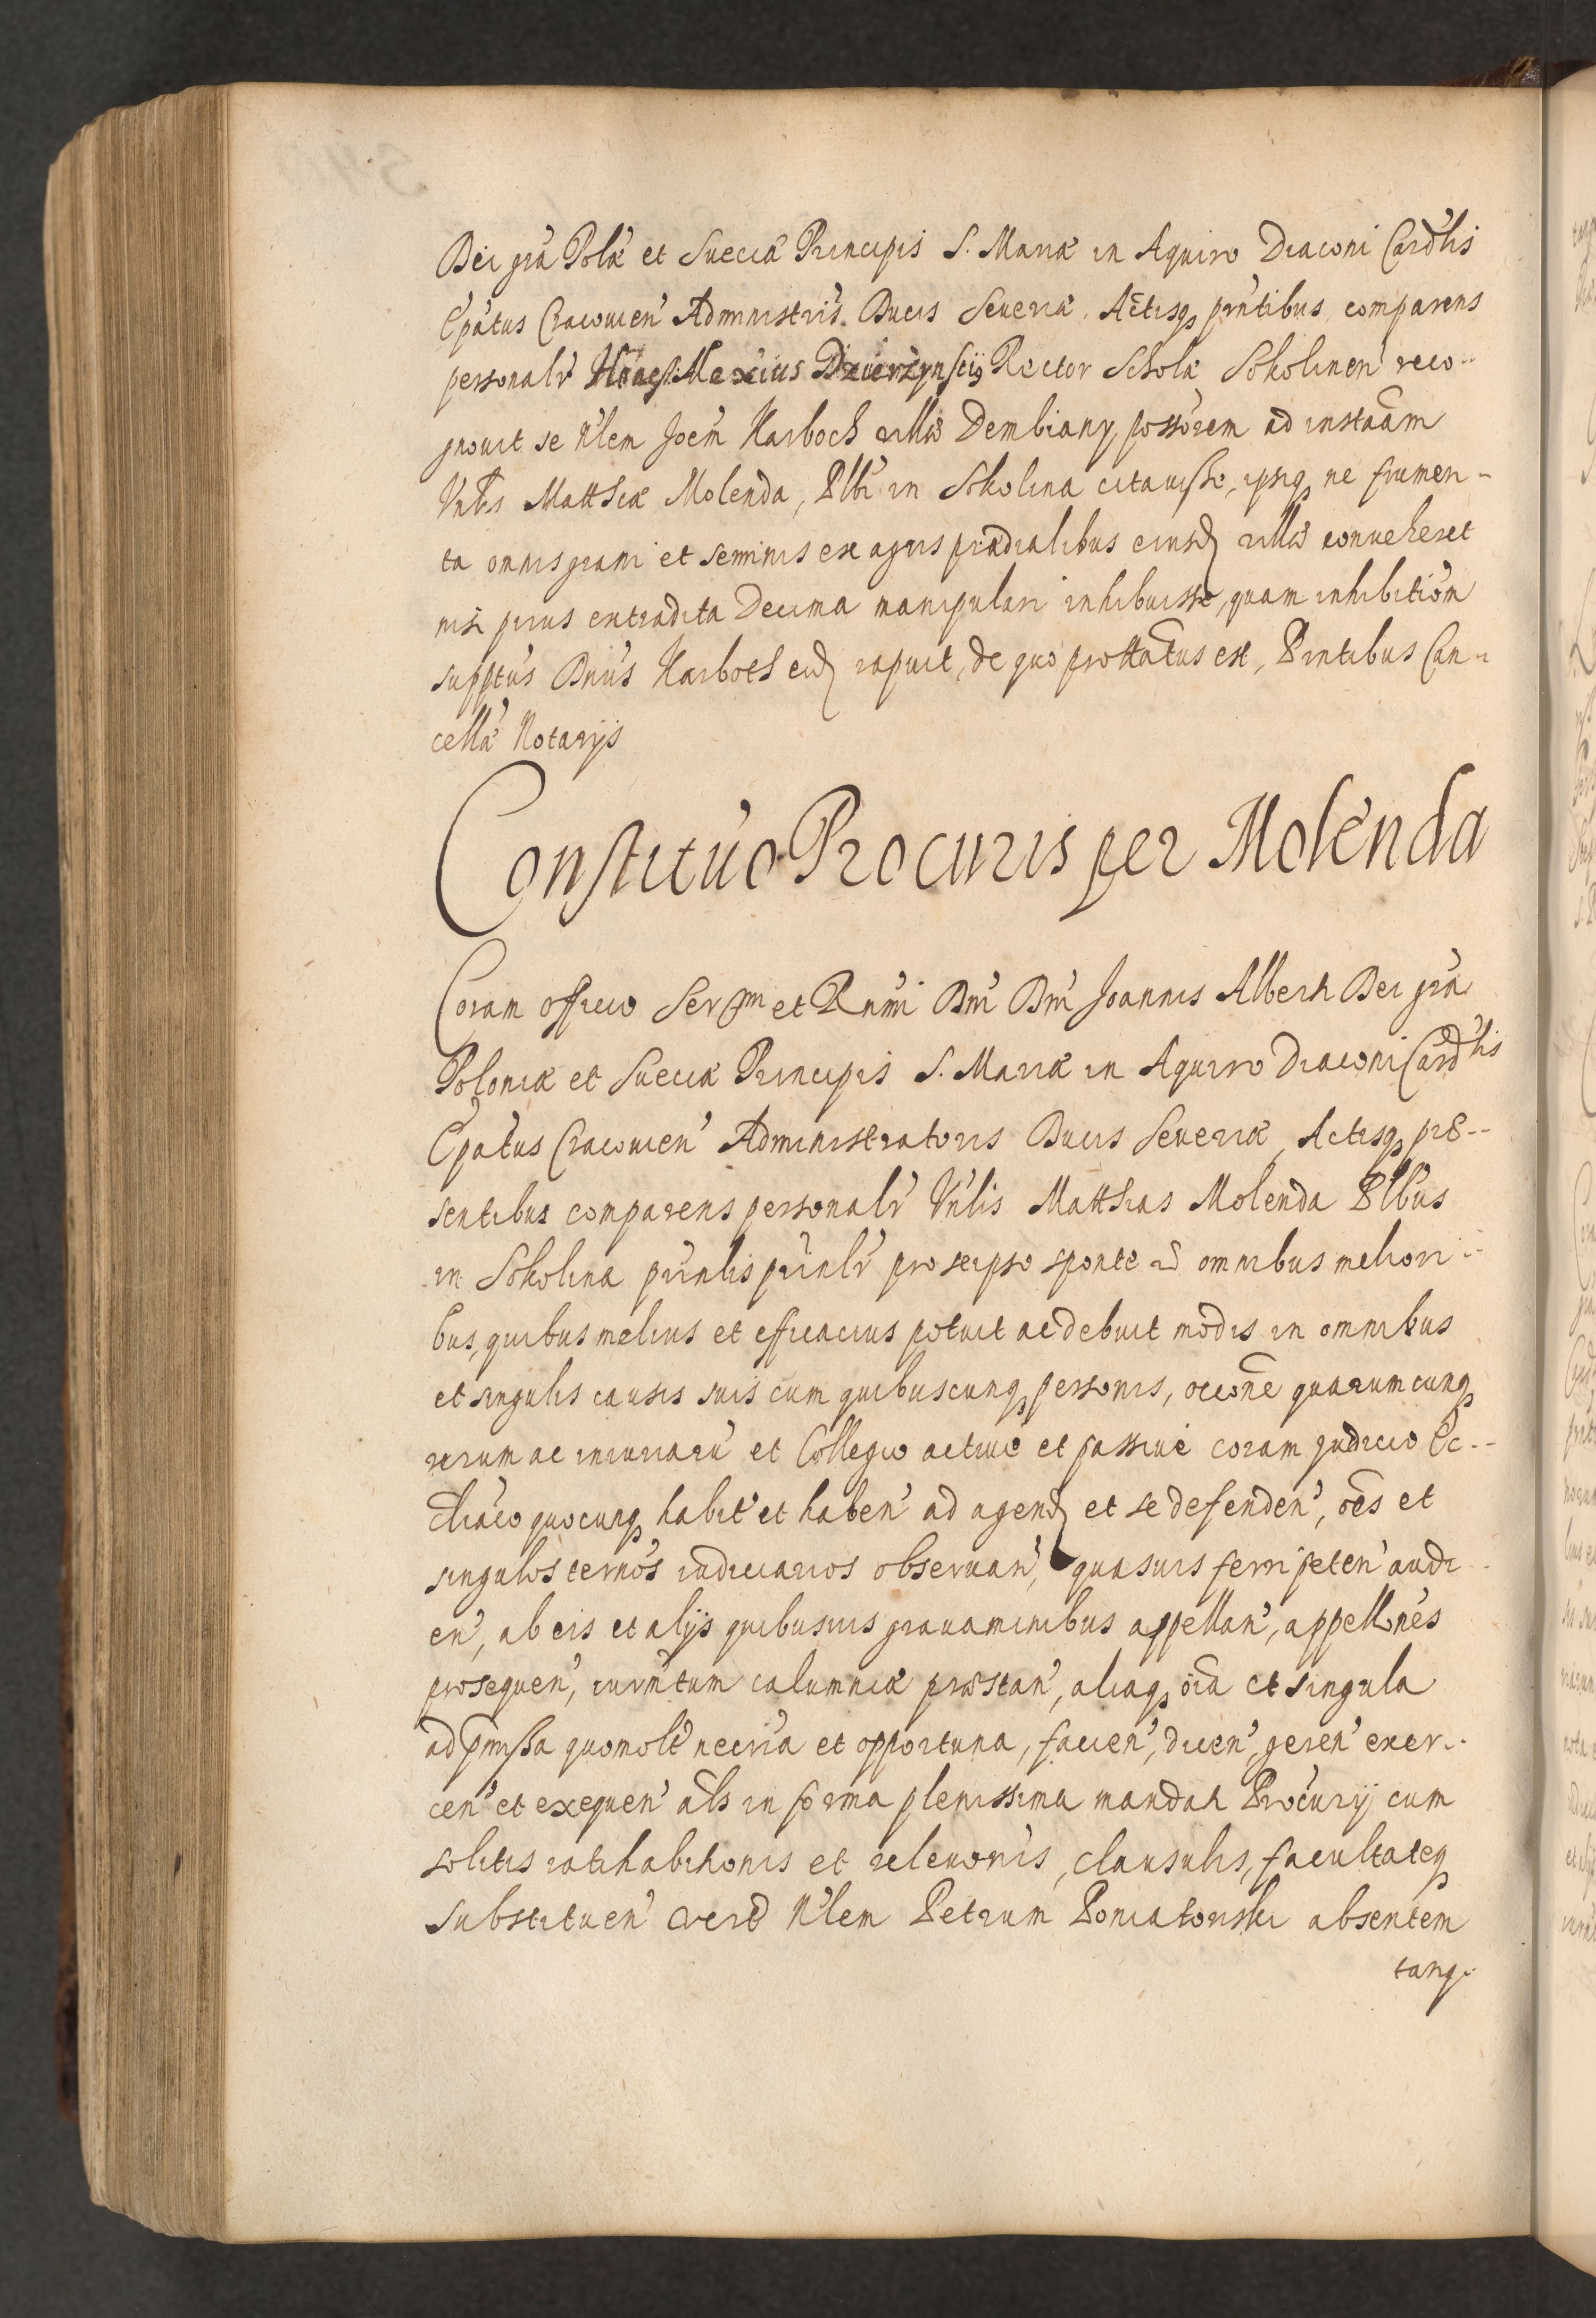 Dei gra Polæ et Sueciæ Principis S. Mariæ in Aquiro Diaconi Cardlis
Epatus Cracovien Administris Ducis Severiæ Actisq pntibus comparens
personalr Honest Alexius Dzierzynscius Rector Scholæ Sokolinen reco-
gnovit se Nlem Joem Karboch villæ Dembiany possorem ad instaam
Vnlis Matthiæ Molenda, Plbi in Sokolina citavisse, ipsiq ne frumen-
ta omnis grani et seminis ex agris prædialibus eiusd villæ conveheret
nisi prius extradita Decima manipulari inhibuisse, quam inhibitiom
supptus Dnus Karboth eid rapuit, de quo prottatus est, Pntibus Can-
cellæ Notarijs
Constituo Procuris per Molenda
Coram officio Sermi et Rnmi Dni Dni Joannis Alberti Dei gra
Poloniæ et Sueciæ Principis S. Mariæ in Aquiro Diaconi Cardlis
Epatus Cracovien Administratoris Ducis Severiæ, Actisq præ-
sentibus comparens personalr Vnlis Matthias Molenda Plbus
in Sokolina prinlis prinlr pro seipso sponte ac omnibus meliori-
bus, quibus melius et efficacius potuit ac debuit modis in omnibus
et singulis causis suis cum quibuscunq personis, occone quarumcunq
rerum ac iniuriaru et Collegio active et passive coram Judicio Ec-
cliaco quocunq habit et haben ad agend et se defenden, oes et
singulos ternos iudiciarios observan, quasvis ferri peten audi
en, ab eis et alijs quibusvis gravaminibus appellan, appellones
prosequen, iurmtum calumniæ præstan, aliaq oia et singula
ad pmissa quomolt necria et opportuna, facien, dicen, geren exer-
cen et exequen als in forma plenissima mandati Procurij cum
solitis ratihabitionis et relevonis, clausulis, facultateq
substituen creat Nlem Petrum Poniatowski absentem
tanq